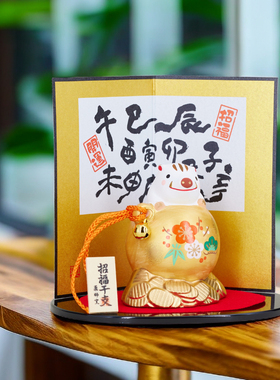 午巳辰
酉寅卯子
未申
招福
開運
招福干支